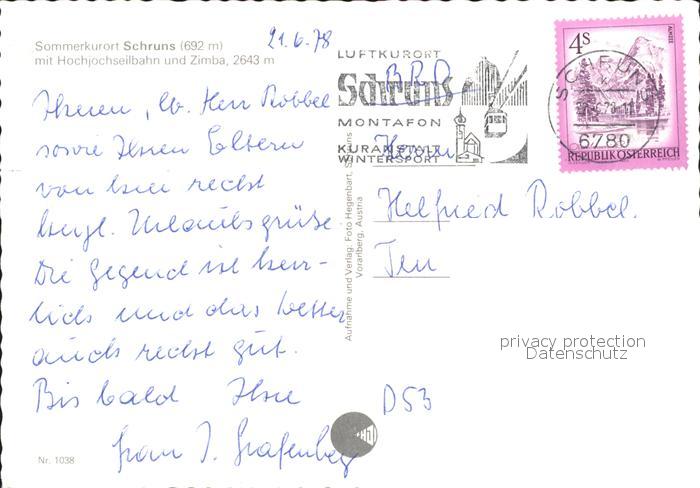 Sommerkurort Schruns (692 m)
mit Hochjochseilbahn und Zimba, 2643 m
21.6.78
Ihnen, lb. Herr Robbel
sowie Ihren Eltern
von hier recht
herzl. Urlaubsgrüße.
Die Gegend ist herr-
lich und das Wetter
auch recht gut.
Bis bald Ihre
Frau I. Grafenberg
Nr. 1038
Aufnahme und Verlag: Foto Hegenbart, Schruns
Vorarlberg, Austria
LUFTKURORT
Schruns
MONTAFON
KURANSTALT
WINTERSPORT
BRD
4S
ALMSEE
REPUBLIK ÖSTERREICH
SCHRUNS
6780
Herrn
Helfried Robbel.
D53
privacy protection
Datenschutz